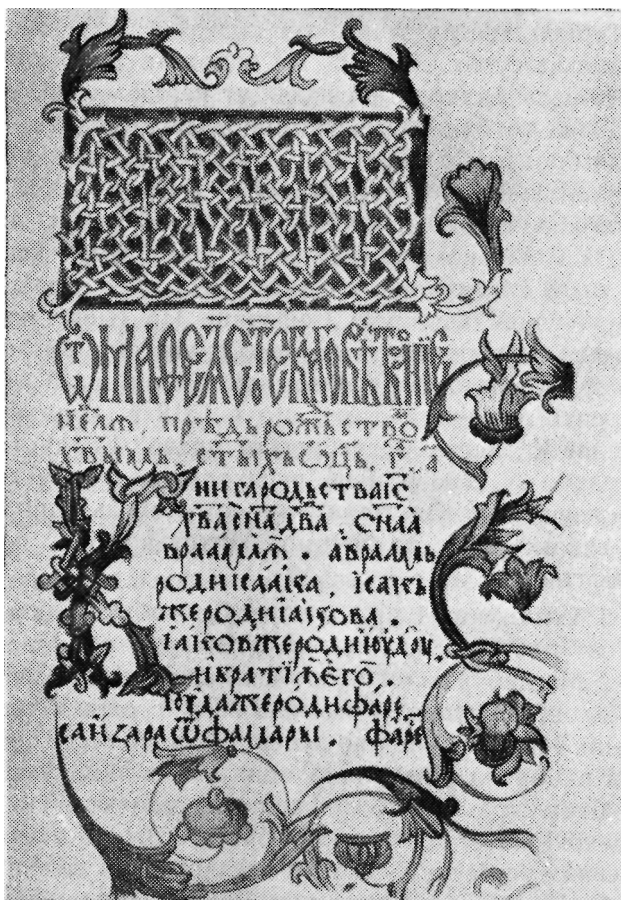 ѿ маѳеꙗ ст҃ое бл҃говѣствованїе
нєлѧ, прѣдь рожьством
хв҃ымь, ст҃ыхь ѿц҃ь, гл҃ а
Книга родьства іс҃
хв҃а сн҃а дв҃а, сн҃а а
враамлѧ. авраамь
роди ісаака, ісакь
же роди іакова.
іаков же роди іюдоу,
и братїѫ єго.
Іоуда же роди фаре
са и зара ѿ фамары. фаре